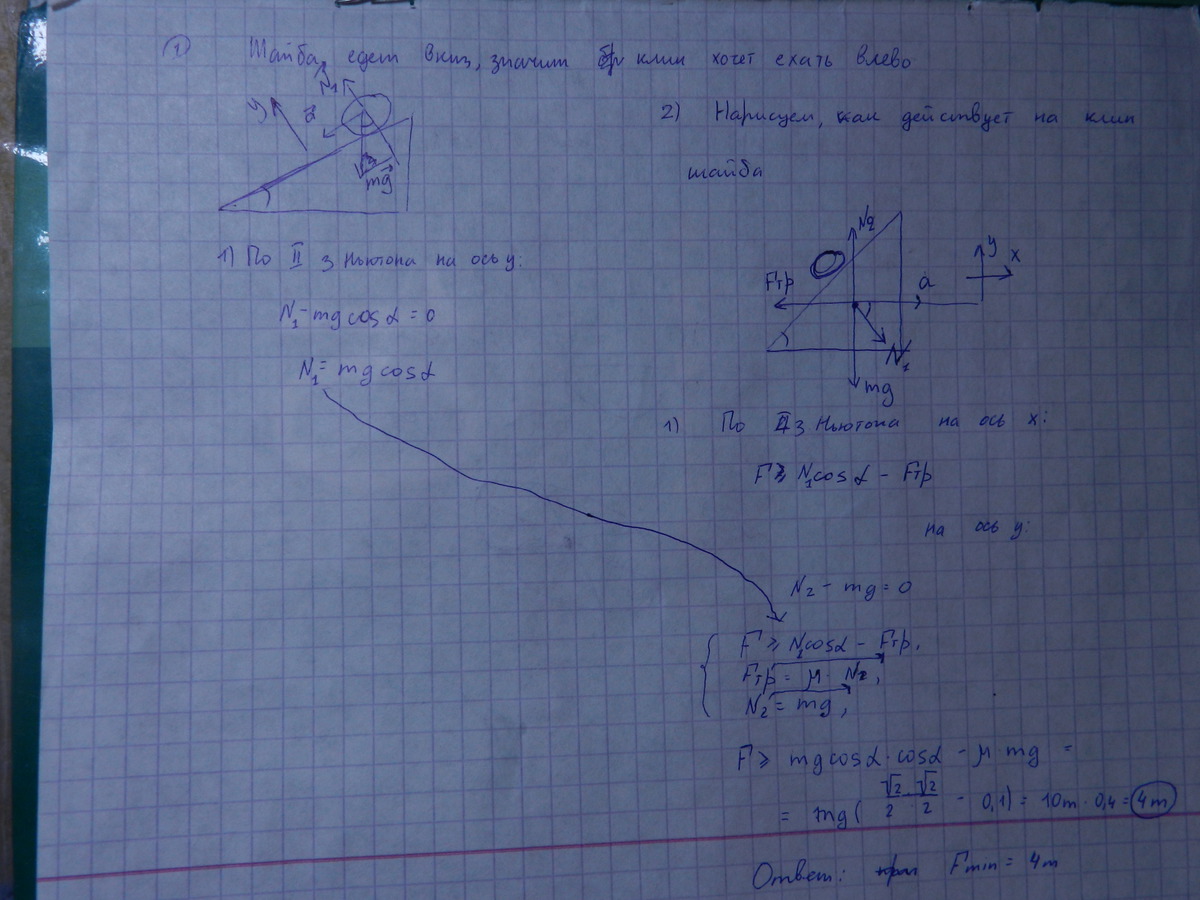 1 Шайба едет вниз, значит клин хочет ехать влево
N₁
y
mg
1) По II з Ньютона на ось y:
N₁ - mg cos α = 0
N₁ = mg cos α
2) Нарисуем, как действует на клин
шайба
N₂
y
x
Fтр
a
N₁
mg
1) По II з Ньютона на ось x:
F ≥ N₁cos α - Fтр
на ось y:
N₂ - mg = 0
F ≥ N₁cos α - Fтр,
Fтр = μ · N₂,
N₂ = mg,
F ≥ mg cos α · cos α - μ mg =
= mg( √2/2 · √2/2 - 0,1) = 10m · 0,4 = 4m
Ответ: Fmin = 4m